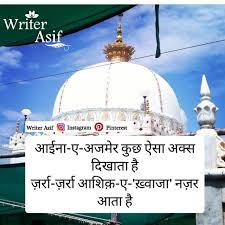 Writer
Asif
Writer Asif Instagram Pinterest
आईना-ए-अजमेर कुछ ऐसा अक्स
दिखाता है
ज़र्रा-ज़र्रा आशिक़-ए-'ख़्वाजा' नज़र
आता है